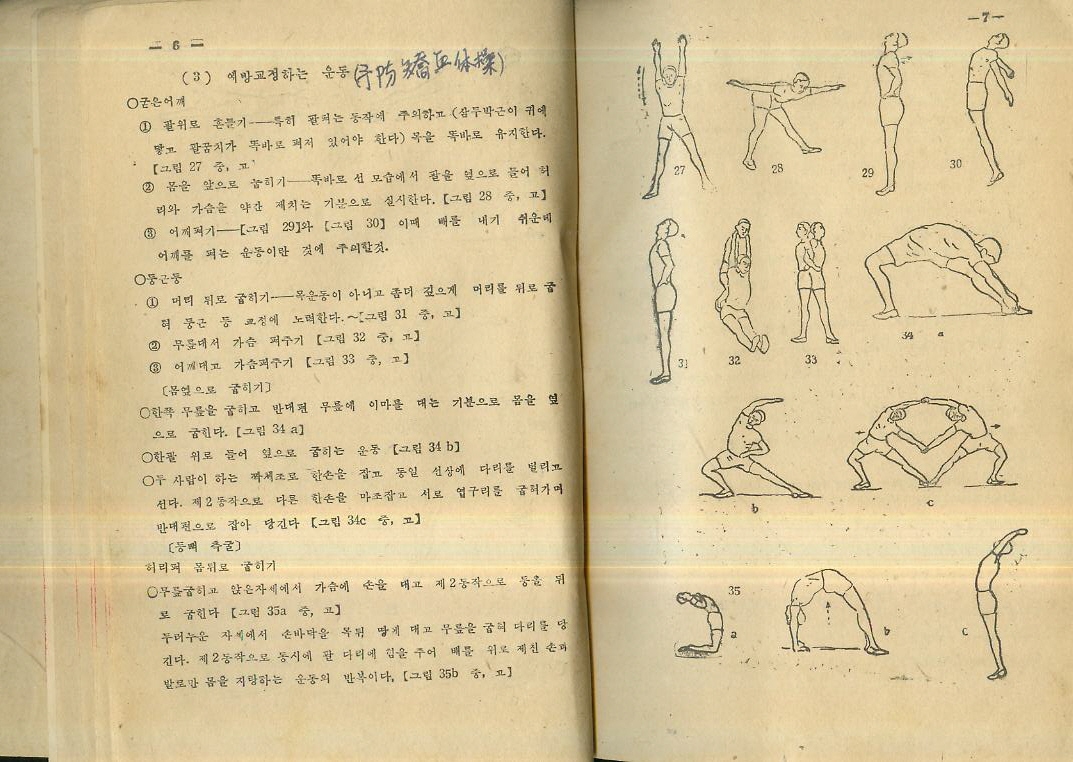 — 6 —
(3) 예방교정하는 운동 (予防矯正体操)
○굳은어깨
① 팔위로 흔들기——특히 팔펴는 동작에 주의하고 (잠두박근이 귀에
닿고 팔꿈치가 똑바로 펴져 있어야 한다) 목을 똑바로 유지한다.
【그림 27 중, 고
② 몸을 앞으로 눕히기——똑바로 선 모습에서 팔을 옆으로 들어 허
리와 가슴을 약간 재치는 기분으로 실시한다. 【그림 28 중, 고】
③ 어깨펴기——【그림 29】와 【그림 30】 이때 배를 내기 쉬운데
어깨를 펴는 운동이란 것에 주의할것.
○둥근등
① 머리 뒤로 굽히기——목운동이 아니고 좀더 깊으게 머리를 뒤로 굽
혀 둥근 등 교정에 노력한다.~【그림 31 중, 고】
② 무릎대서 가슴 펴주기 【그림 32 중, 고】
③ 어깨대고 가슴펴주기 【그림 33 중, 고】
〔몸옆으로 굽히기〕
○한쪽 무릎을 굽히고 반대편 무릎에 이마를 대는 기분으로 몸을 옆
으로 굽힌다. 【그림 34 a】
○한팔 위로 들어 옆으로 굽히는 운동 【그림 34 b】
○두 사람이 하는 짝체조로 한손을 잡고 동일 선상에 다리를 벌리고
선다. 제2동작으로 다른 한손을 마조잡고 서로 엽구리를 굽혀가며
반대편으로 잡아 당긴다 【그림 34c 중, 고】
〔등뼈 측굴〕
허리펴 몸뒤로 굽히기
○무릎굽히고 앉은자세에서 가슴에 손을 대고 제2동작으로 등을 뒤
로 굽힌다 【그림 35a 중, 고】
두러누운 자세에서 손바닥을 목뒤 땅에 대고 무릎을 굽혀 다리를 당
긴다. 제2동작으로 동시에 팔 다리에 힘을 주어 배를 위로 제친 손과
발로만 몸을 지탕하는 운동의 반복이다, 【그림 35b 중, 고】
—7—
27
28
29
30
31
32
33
34 a
b
c
35
a
b
c